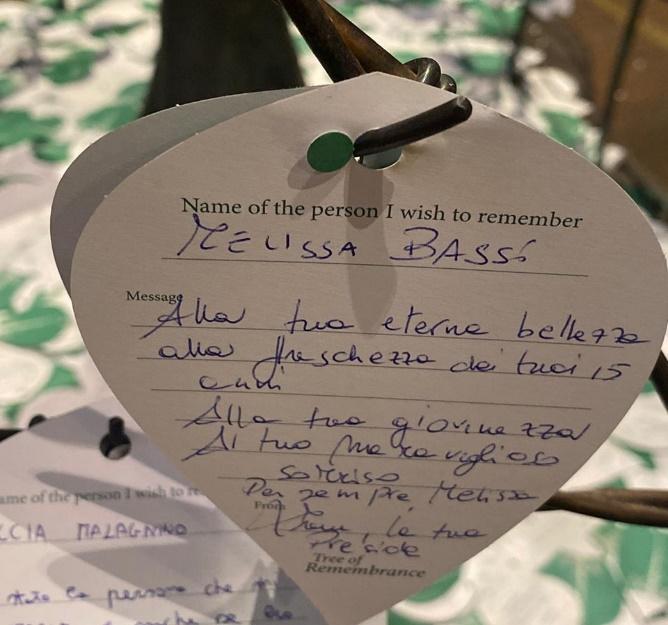 Name of the person I wish to remember
MELISSA BASSI
Message
Alla tua eterna bellezza
alla freschezza dei tuoi 15
anni
Alla tua giovinezza
Al tuo meraviglioso
sorriso
Per sempre Melissa
From
la tua
Preside
Tree of
Remembrance
ame of the person I wish to re
CCIA MALAGNINO
persona che